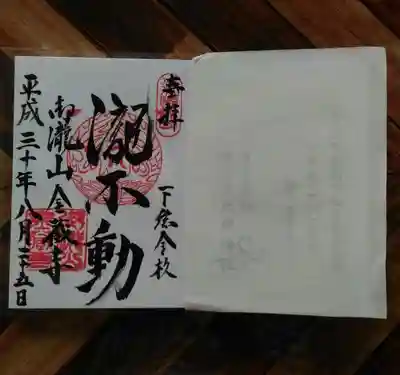 奉拝
下総金杉
瀧不動
御瀧山金蔵寺
平成三十年八月二十五日